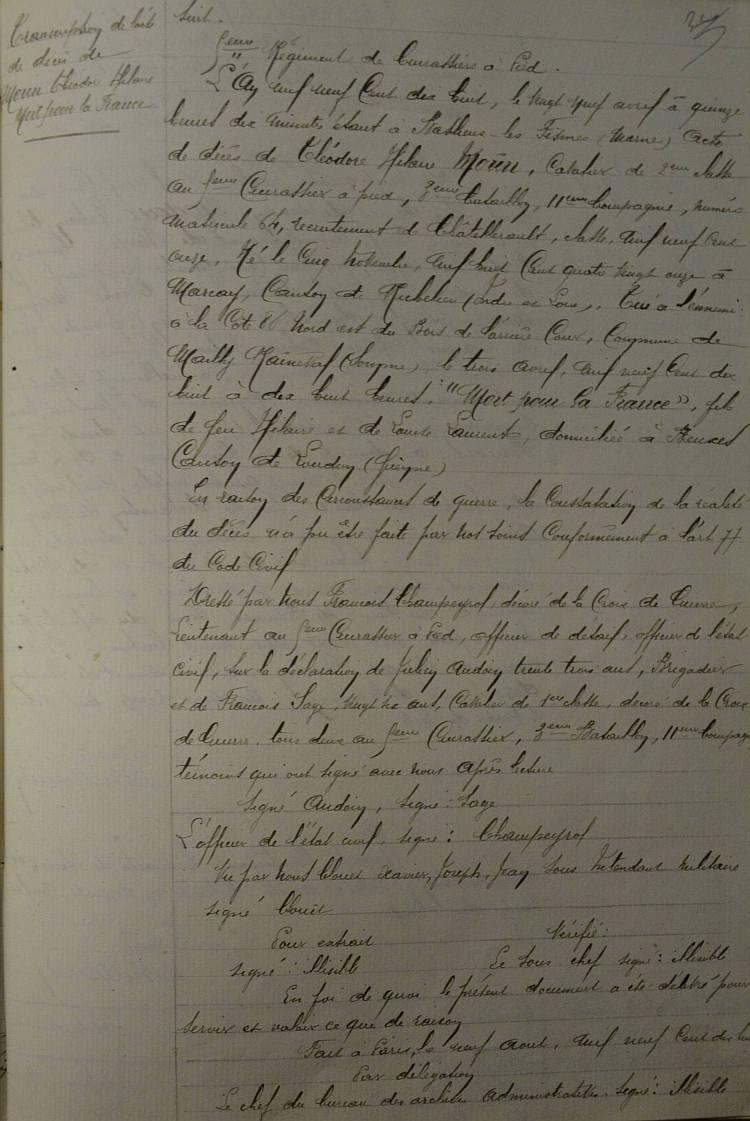 Transcription de l'acte
de décès de
Morin Théodore Hilaire
Mort pour la France
suit.
Régiment de Cuirassiers à Pied.
L'An mil neuf cent dix huit, le vingt neuf avril à quinze
heures dix minutes étant à les Fismes (Marne) Acte
de décès de Théodore Hilaire Morin, Cavalier de 2ème classe
au Cuirassier à pied, 3ème Bataillon, 11ème Compagnie, numéro
matricule 64, recrutement de Châtellerault, classe mil neuf cent
onze, Né le cinq Novembre, mil huit cent quatre vingt onze à
Marcay, Canton de Richelieu (Indre et Loire), Tué à l'ennemi
à la Côte 86 Nord est du Bois de l'arrière Cour, Commune de
Mailly Raineval (Somme), le trois avril, mil neuf cent dix
huit à dix huit heures, "Mort pour la France", fils
de feu Hilaire et de Laurent, domicilié à
Canton de Loudun (Vienne)
En raison des circonstances de guerre, la constatation de la réalité
du décès n'a pu être faite par nos soins conformément à l'art 77
du Code Civil
Dressé par nous François Champeyrol, décoré de la Croix de Guerre,
Lieutenant au Cuirassier à Pied, officier de détail, officier de l'état
civil, sur la déclaration de Julien Audoin trente trois ans, Brigadier
et de François Sage, vingt ans, Cavalier de 1ère classe, décoré de la Croix
de Guerre, tous deux au Cuirassier, 3ème Bataillon, 11ème Compagnie
témoins qui ont signé avec nous après lecture
Signé Audoin, Signé: Sage
L'officier de l'état civil, signé: Champeyrol
Vu par nous Clouet Xavier, Joseph, Jean Sous Intendant militaire
signé Clouet
Pour extrait Vérifié:
signé: Illisible Le Sous chef signé: Illisible
En foi de quoi le présent document a été délivré pour
servir et valoir ce que de raison
Fait à Paris, le neuf août, mil neuf cent dix huit
Par délégation
Le chef du bureau des archives administratives. Signé: Illisible